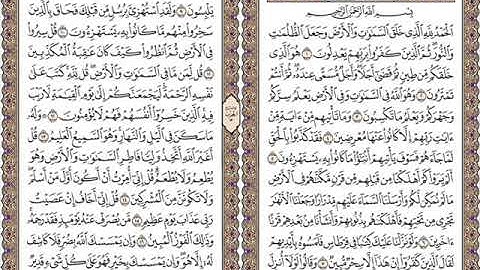 بِسْمِ اللَّهِ الرَّحْمَٰنِ الرَّحِيمِ
الْحَمْدُ لِلَّهِ الَّذِي خَلَقَ السَّمَٰوَٰتِ وَالْأَرْضَ وَجَعَلَ الظُّلُمَٰتِ
وَالنُّورَ ثُمَّ الَّذِينَ كَفَرُوا بِرَبِّهِمْ يَعْدِلُونَ ١ هُوَ الَّذِي
خَلَقَكُم مِّن طِينٍ ثُمَّ قَضَىٰ أَجَلًا وَأَجَلٌ مُّسَمًّى عِندَهُ ثُمَّ أَنتُمْ
تَمْتَرُونَ ٢ وَهُوَ اللَّهُ فِي السَّمَٰوَٰتِ وَفِي الْأَرْضِ يَعْلَمُ سِرَّكُمْ
وَجَهْرَكُمْ وَيَعْلَمُ مَا تَكْسِبُونَ ٣ وَمَا تَأْتِيهِم مِّنْ ءَايَةٍ مِّنْ
ءَايَٰتِ رَبِّهِمْ إِلَّا كَانُوا عَنْهَا مُعْرِضِينَ ٤ فَقَدْ كَذَّبُوا بِالْحَقِّ
لَمَّا جَاءَهُمْ فَسَوْفَ يَأْتِيهِمْ أَنبَٰؤُا مَا كَانُوا بِهِ يَسْتَهْزِءُونَ ٥
أَلَمْ يَرَوْا كَمْ أَهْلَكْنَا مِن قَبْلِهِم مِّن قَرْنٍ مَّكَّنَّٰهُمْ فِي الْأَرْضِ
مَا لَمْ نُمَكِّن لَّكُمْ وَأَرْسَلْنَا السَّمَاءَ عَلَيْهِم مِّدْرَارًا وَجَعَلْنَا الْأَنْهَٰرَ
تَجْرِي مِن تَحْتِهِمْ فَأَهْلَكْنَٰهُم بِذُنُوبِهِمْ وَأَنشَأْنَا مِن بَعْدِهِمْ قَرْنًا
ءَاخَرِينَ ٦ وَلَوْ نَزَّلْنَا عَلَيْكَ كِتَٰبًا فِي قِرْطَاسٍ فَلَمَسُوهُ بِأَيْدِيهِمْ
لَقَالَ الَّذِينَ كَفَرُوا إِنْ هَٰذَا إِلَّا سِحْرٌ مُّبِينٌ ٧ وَقَالُوا لَوْلَا أُنزِلَ
يَلْبِسُونَ ٩ وَلَقَدِ اسْتُهْزِئَ بِرُسُلٍ مِّن قَبْلِكَ فَحَاقَ بِالَّذِينَ
سَخِرُوا مِنْهُم مَّا كَانُوا بِهِ يَسْتَهْزِءُونَ ١٠ قُلْ سِيرُوا
فِي الْأَرْضِ ثُمَّ انظُرُوا كَيْفَ كَانَ عَٰقِبَةُ الْمُكَذِّبِينَ
١١ قُل لِّمَن مَّا فِي السَّمَٰوَٰتِ وَالْأَرْضِ قُل لِّلَّهِ كَتَبَ عَلَىٰ
نَفْسِهِ الرَّحْمَةَ لَيَجْمَعَنَّكُمْ إِلَىٰ يَوْمِ الْقِيَٰمَةِ لَا رَيْبَ
فِيهِ الَّذِينَ خَسِرُوا أَنفُسَهُمْ فَهُمْ لَا يُؤْمِنُونَ ١٢ وَلَهُ
مَا سَكَنَ فِي الَّيْلِ وَالنَّهَارِ وَهُوَ السَّمِيعُ الْعَلِيمُ ١٣ قُلْ
أَغَيْرَ اللَّهِ أَتَّخِذُ وَلِيًّا فَاطِرِ السَّمَٰوَٰتِ وَالْأَرْضِ وَهُوَ
يُطْعِمُ وَلَا يُطْعَمُ قُلْ إِنِّي أُمِرْتُ أَنْ أَكُونَ أَوَّلَ مَنْ أَسْلَمَ
وَلَا تَكُونَنَّ مِنَ الْمُشْرِكِينَ ١٤ قُلْ إِنِّي أَخَافُ إِنْ عَصَيْتُ
رَبِّي عَذَابَ يَوْمٍ عَظِيمٍ ١٥ مَّن يُصْرَفْ عَنْهُ يَوْمَئِذٍ فَقَدْ رَحِمَهُ
وَذَٰلِكَ الْفَوْزُ الْمُبِينُ ١٦ وَإِن يَمْسَسْكَ اللَّهُ بِضُرٍّ فَلَا كَاشِفَ
لَهُ إِلَّا هُوَ وَإِن يَمْسَسْكَ بِخَيْرٍ فَهُوَ عَلَىٰ كُلِّ شَيْءٍ قَدِيرٌ